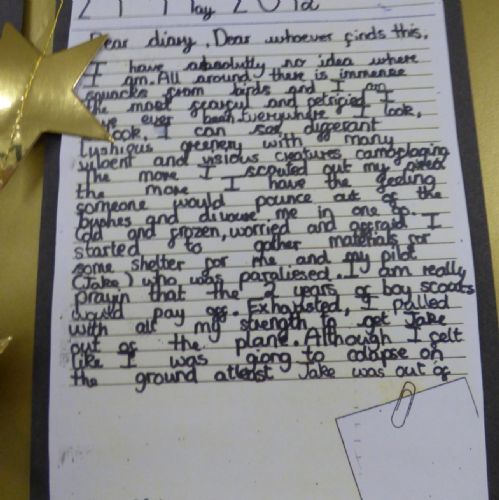 May 2012
Dear diary, Dear whoever finds this,
I have absoloutly no idea where
I am. All around there is immense
squacks from birds and I am
the most fearful and petrified I
have ever been. Everywhere I look,
look, I can see, differant
lushious greenery with many
viloent and visious creatures camoflaging
The more I scouted out my area
the more I have the feeling
someone would pounce out of the
bushes and divouse me in one go.
Cold and frozen, worried and afraid I
started to gather materials for
some shelter for me and my pilot
(Jake) who was paraliesed. I am really
prayin that the 2 years of boy scouts
would pay off. Exhausted, I pulled
with all my strength to get Jake
out of the plane. Although I felt
like I was giong to colapse on
the ground atleast Jake was out of